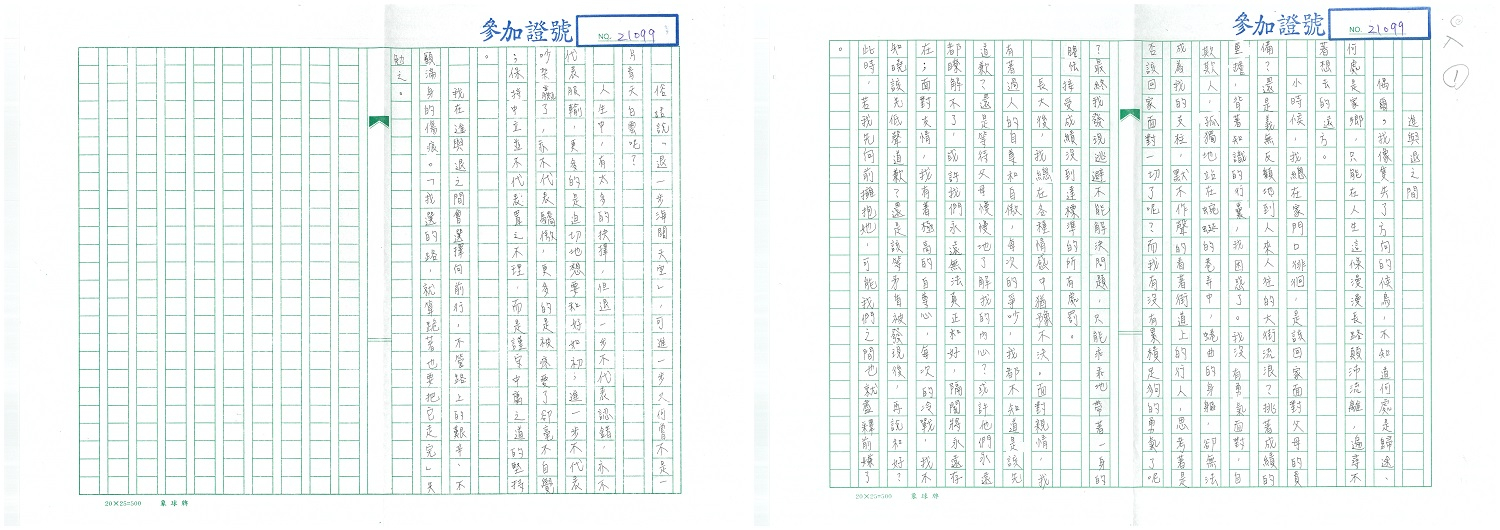 參加證號
NO. 21099
①
進與退之間
偶爾，我像隻失了方向的候鳥，不知道何處是歸途、
何處是家鄉，只能在人生這條漫漫長路顛沛流離，遍尋不
著想去的遠方。
小時候，我總在家門口徘徊，是該回家面對父母的責
備？還是義無反顧地到人來人往的大街流浪？挑著成績的
重擔，背著知識的行囊，我困惑了。我沒有勇氣面對，自
欺欺人，孤獨地站在蜿蜒的巷弄中，蜷曲的身軀，卻無法
成為我的支柱，默不作聲的看著街道上的行人，思考著是
否該回家面對一切了呢？而我有沒有累積足夠的勇氣了呢
？最終我發現逃避不能解決問題，只能乖乖地帶著一身的
膽怯接受成績沒到達標準的所有處罰。
長大後，我總在各種情感中猶豫不決。面對親情，我
有著過人的自尊和自傲，每次的爭吵，我都不知道是該先
道歉？還是等待父母慢慢地了解我的內心？或許他們永遠
都瞭解不了，或許我們永遠無法真正和好，隔閡將永遠存
在；面對友情，我有著極高的自尊心，每次的冷戰，我不
知曉該先低聲道歉？還是該等步自被發現後，再說和好？
此時，若我先向前擁抱她，可能我們之間也就盡釋前嫌了
。
參加證號
NO. 21099
俗話說「退一步海闊天空」，可進一步又何嘗不是一
片青天白雲呢？
人生中，有太多的抉擇，但退一步不代表認錯，永不
代表服輸，更多的是迫切地想要和好如初；進一步不代表
吵架贏了，永不代表驕傲，更多的是被疼愛了卻毫不自覺
；保持中立並不代表置之不理，而是謹守中庸之道的堅持
。
我在進與退之間會選擇向前行，不管路上的艱辛、不
顧滿身的傷痕。「我選的路，就算跪著也要把它走完」共
勉之。
20×25=500 象球牌
20×25=500 象球牌